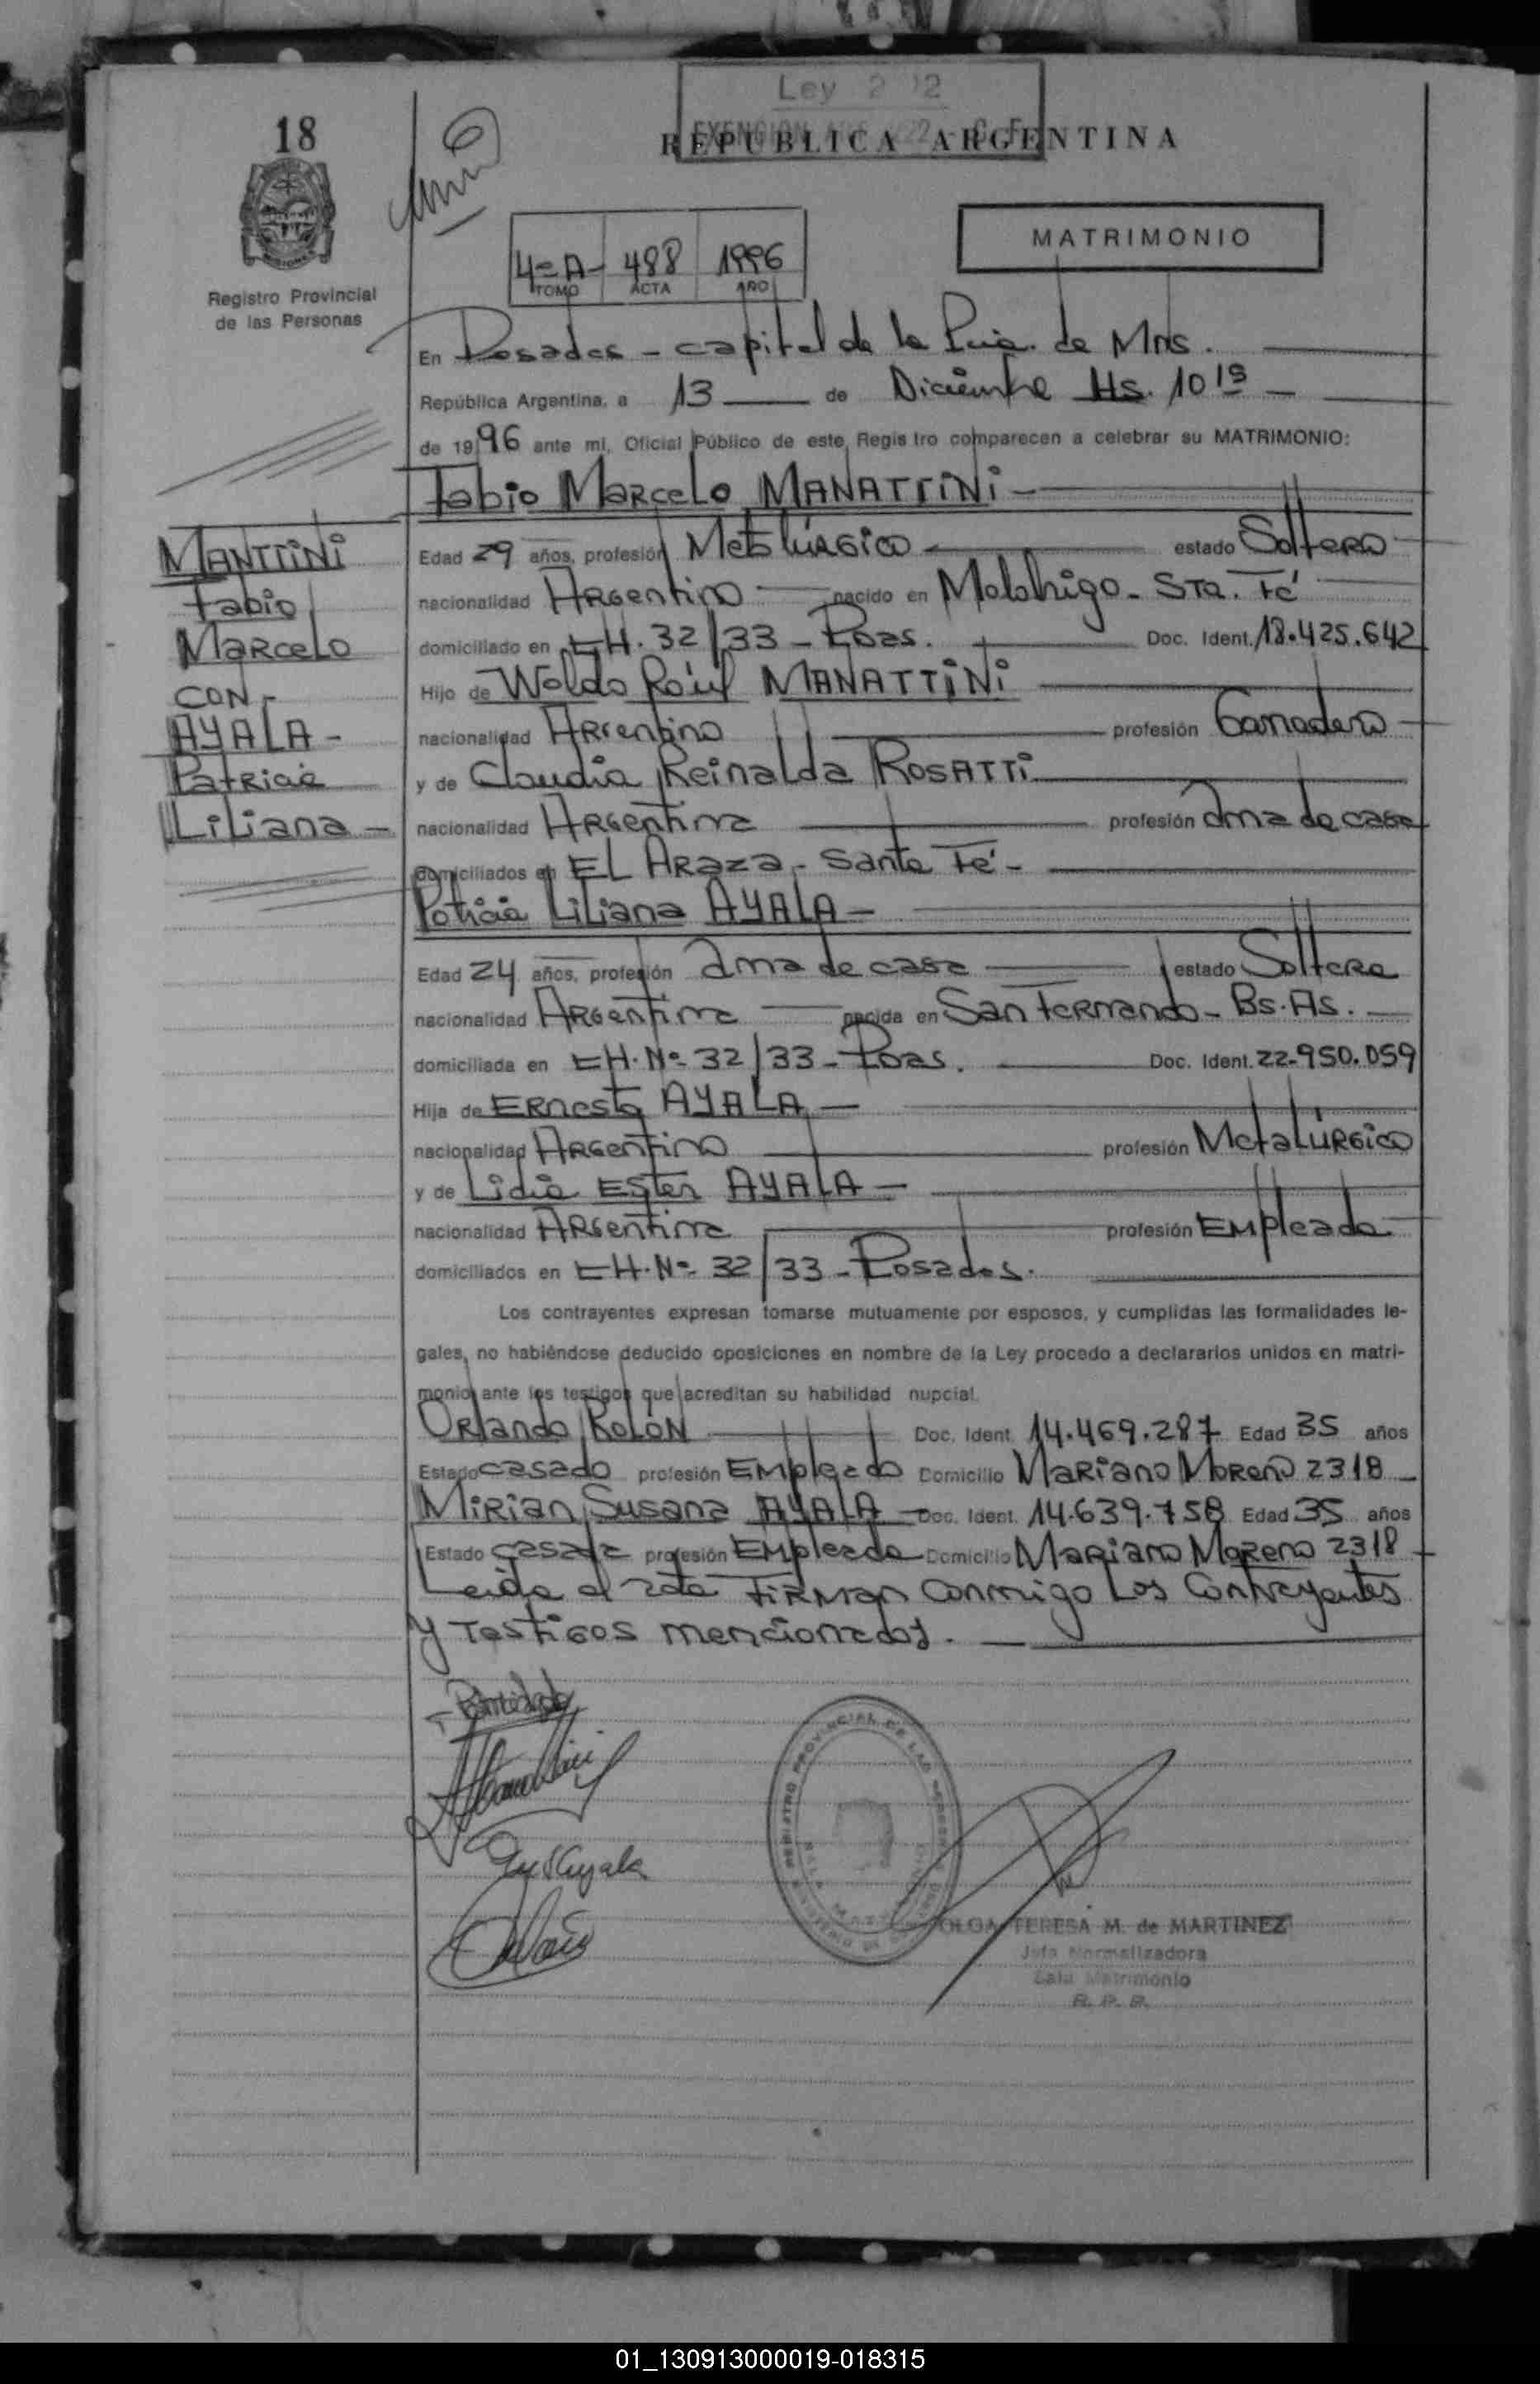 18
Ley 2
REPUBLICA ARGENTINA
MATRIMONIO
4º A- 488 1996
TOMO ACTA AÑO
Registro Provincial
de las Personas
En Posadas - capital de la Pcia. de Mns.
República Argentina, a 13 de Diciembre Hs. 10 15
de 1996 ante mí, Oficial Público de este Registro comparecen a celebrar su MATRIMONIO:
Fabio Marcelo MANATTINI -
Edad 29 años, profesión Metalúrgico estado Soltero
nacionalidad Argentino nacido en Malabrigo - Sta. Fé
domiciliado en CH. 32/33 - Pdas. Doc. Ident. 18.425.642
Hijo de Waldo Raúl MANATTINI
nacionalidad Argentino profesión Ganadero
y de Claudia Reinalda ROSATTI
nacionalidad Argentina profesión Ama de casa
domiciliados en EL Araza - Santa Fé -
Patricia Liliana AYALA -
Edad 24 años, profesión Ama de casa estado Soltera
nacionalidad Argentina nacida en San Fernando - Bs. As.
domiciliada en CH. Nº 32/33 - Pdas. Doc. Ident. 22.950.059
Hija de Ernesto AYALA -
nacionalidad Argentino profesión Metalúrgico
y de Lidia Ester AYALA -
nacionalidad Argentina profesión Empleada
domiciliados en CH. Nº 32/33 - Posadas.
Los contrayentes expresan tomarse mutuamente por esposos, y cumplidas las formalidades le-
gales, no habiéndose deducido oposiciones en nombre de la Ley procedo a declararlos unidos en matri-
monio ante los testigos que acreditan su habilidad nupcial.
Orlando Rolón Doc. Ident. 14.469.287 Edad 35 años
Estado casado profesión Empleado Domicilio Mariano Moreno 2318
Mirian Susana AYALA - Doc. Ident. 14.639.758 Edad 35 años
Estado casada profesión Empleada Domicilio Mariano Moreno 2318
Leida el acta firman conmigo los contrayentes
y testigos mencionados.
MANTTINI
Fabio
Marcelo
CON -
AYALA -
Patricia
Liliana -
REGISTRO PROVINCIAL DE LAS
OLGA TERESA M. de MARTINEZ
Jefa Normalizadora
Sala Matrimonio
R. P. P.
01_130913000019-018315